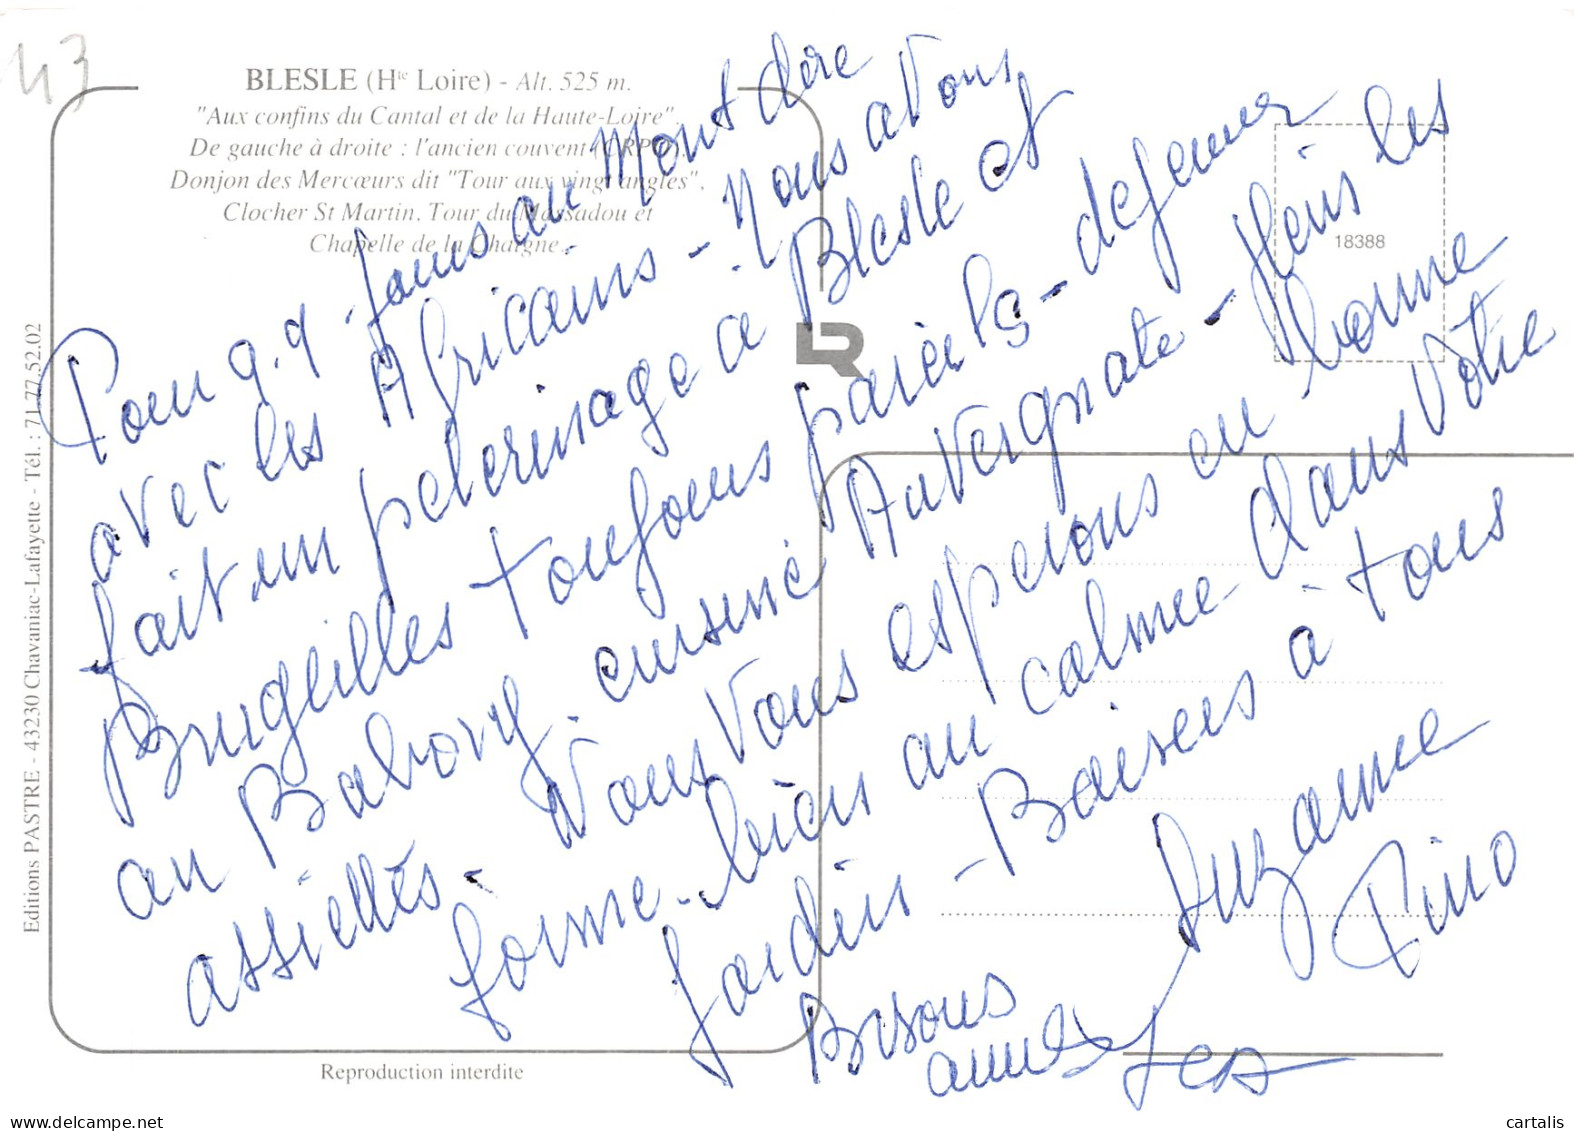 43
BLESLE (Hte Loire) - Alt. 525 m.
"Aux confins du Cantal et de la Haute-Loire".
De gauche à droite : l'ancien couvent
Donjon des Mercœurs dit "Tour aux vingt angles".
Clocher St Martin. Tour du Massadou et
Chapelle de la Chaigne.
18388
LR
Editions PASTRE - 43230 Chavaniac-Lafayette - Tél. : 71.77.52.02
Pour q.q jours au Mont dore
avec les Africains - Nous avons
fait un pelerinage à Blesle et
Brugeilles toujours pareils - dejeuner
au Babory. cuisine Auvergnate - pleins les
assiettes - Nous vous esperons en bonne
forme. bien au calme dans votre
jardin - Baisers à tous
Suzanne
Pino
Bisous
Reproduction interdite
cartalis
www.delcampe.net